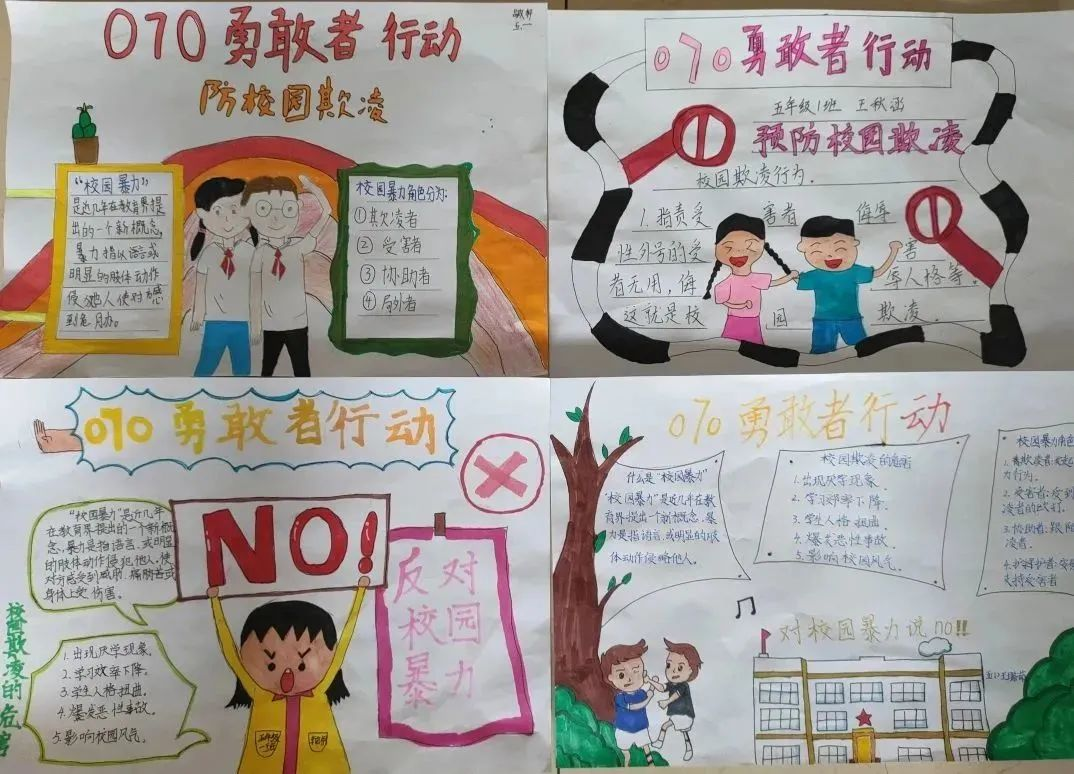 070勇敢者行动
防校园欺凌
五.一
"校园暴力"
是近几年在教育界提
出的一个新概念,
暴力指以语言或
明显的肢体动作
侵
校园暴力角色分为:
①其欠凌者
② 受害者
③ 协助者
④ 局外者
070勇敢者行动
五年级1班 王秋涵
预防校园欺凌
校园欺凌行为.
1.指责受 害者 侮辱
性外号的受 害
者无用,侮 辱人格等.
这就是校 园 欺凌.
070勇敢者行动
"校园暴力"是近几年
在教育界提出的一个新概
念,暴力是指语言,或明显
的肢体动作侵犯他人,使
对方感受到
身体上受伤害。
NO!
反对
校园
暴力
校园欺凌的危害
1.出现厌学现象.
2.学习效率下降.
3.学生人格扭曲.
4.爆发恶性事故.
5.影响校园风气.
五年级
一班
070勇敢者行动
什么是"校园暴力"
"校园暴力"是近几年在教
育界提出一个新概念.暴
力是指语言,或明显的肢
体动作侵略他人。
校园欺凌的危害
1.出现厌学现象.
2.学习效率下降.
3.学生人格扭曲.
4.爆发恶性事故.
5.影响校园风气.
校园暴力角色
力行为.
2.受害者:受到
凌者的
3.协助者:跟
凌者.
支持受害者
对校园暴力说no!!